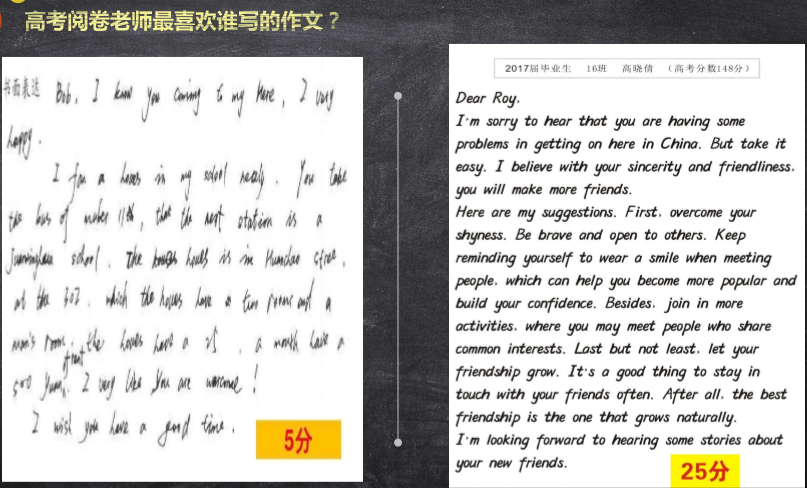 高考阅卷老师最喜欢谁写的作文？
书面表达 Bob, I know you coming to my Here, I very
happy.
I fan a hoves in my school nealy. You take
the bus of 11th, that the next station is a
school. The houes is in Huanchao
at the 302. which the houses have a two rooms and a
room, the hoves have a 25. a month have a
500 Yuan. I very like You are !
I wish you have a good time.
5分
2017届毕业生 16班 高晓倩 （高考分数148分）
Dear Roy,
I'm sorry to hear that you are having some
problems in getting on here in China. But take it
easy. I believe with your sincerity and friendliness,
you will make more friends.
Here are my suggestions. First, overcome your
shyness. Be brave and open to others. Keep
reminding yourself to wear a smile when meeting
people, which can help you become more popular and
build your confidence. Besides, join in more
activities, where you may meet people who share
common interests. Last but not least, let your
friendship grow. It's a good thing to stay in
touch with your friends often. After all, the best
friendship is the one that grows naturally.
I'm looking forward to hearing some stories about
your new friends.
25分